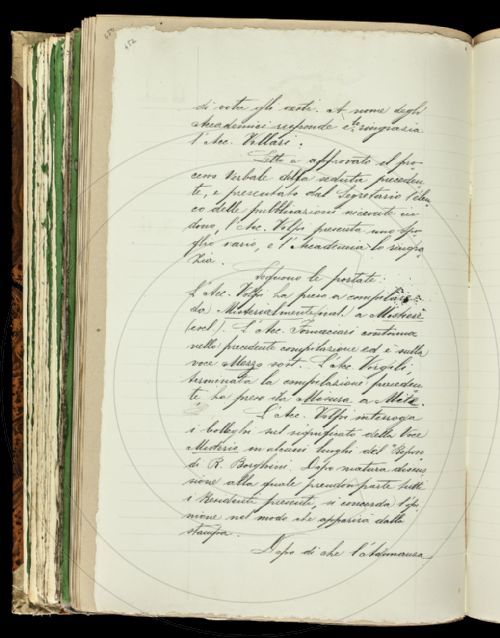 452
di vita gli resti. A nome degli
Accademici risponde e ringrazia
l'Acc. Villari.
Letto e approvato il pro-
cesso Verbale della seduta preceden-
te, e presentato dal Segretario l'elen-
co delle pubblicazioni ricevute in
dono, l'Acc. Volpi presenta uno spo-
glio vario, e l'Accademia lo ringra-
zia.
Seguono le portate:
L'Acc. Volpi ha preso a compilare
da Materialmente a Misteri
L'Acc. Fornaciari continua
nella precedente compilazione ed è sulla
voce Mezzo sost. L'Acc. Virgili,
terminata la compilazione preceden-
te ha preso da Misura a
L'Acc. Volpi interroga
i Colleghi sul significato della voce
Misterio in alcuni luoghi del Riposo
di R. Borghini. Dopo matura discus-
sione alla quale prendon parte tutti
i Residenti presenti, si concorda l'opi-
nione nel modo che apparirà dalla
stampa.
Dopo di che l'Adunanza